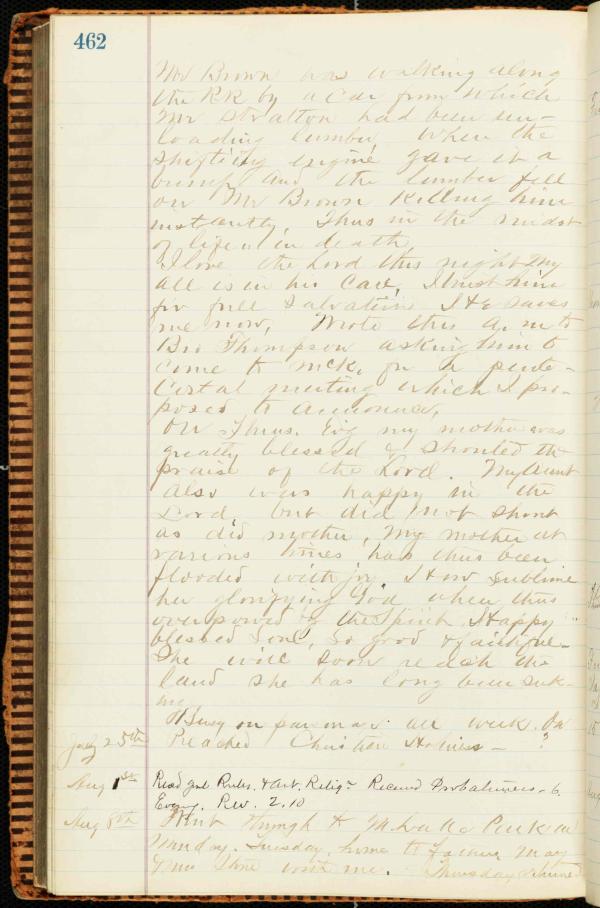 462
Mr Brown was walking along
the RR by a car from which
Mr Stratton had been un-
loading lumber when the
shifting engine gave it a
bump and the lumber fell
on Mr Brown killing him
instantly, Thus in the midst
of life is in death,
I love the Lord this night my
all is in his care, I trust him
for full salvation & He saves
me now, Wrote this a.m to
Bro Thompson asking him to
come to McK, for a pente-
costal meeting which I pro-
posed to announce,
On Thurs. Evg my mother was
greatly blessed & shouted the
praise of the Lord. My Aunt
also was happy in the
Lord but did not shout
as did mother, My mother at
various times has thus been
flooded with joy. How sublime
her glorifying God when thus
overpowered by the Spirit. Happy
blessed Soul, So good & faithful
She will soon reach the
land she has long been seek-
ing
Busy on parsonage all week. On
July 25th Preached Christian Holiness - ?
Aug 1st Read Genl Rules. & Art. Relign Received Probationers - 6
Eveng. Rev. 2.10
Aug 8th Went through to
Monday. Tuesday, home to father May
& Mrs Stone with me. Thursday returned